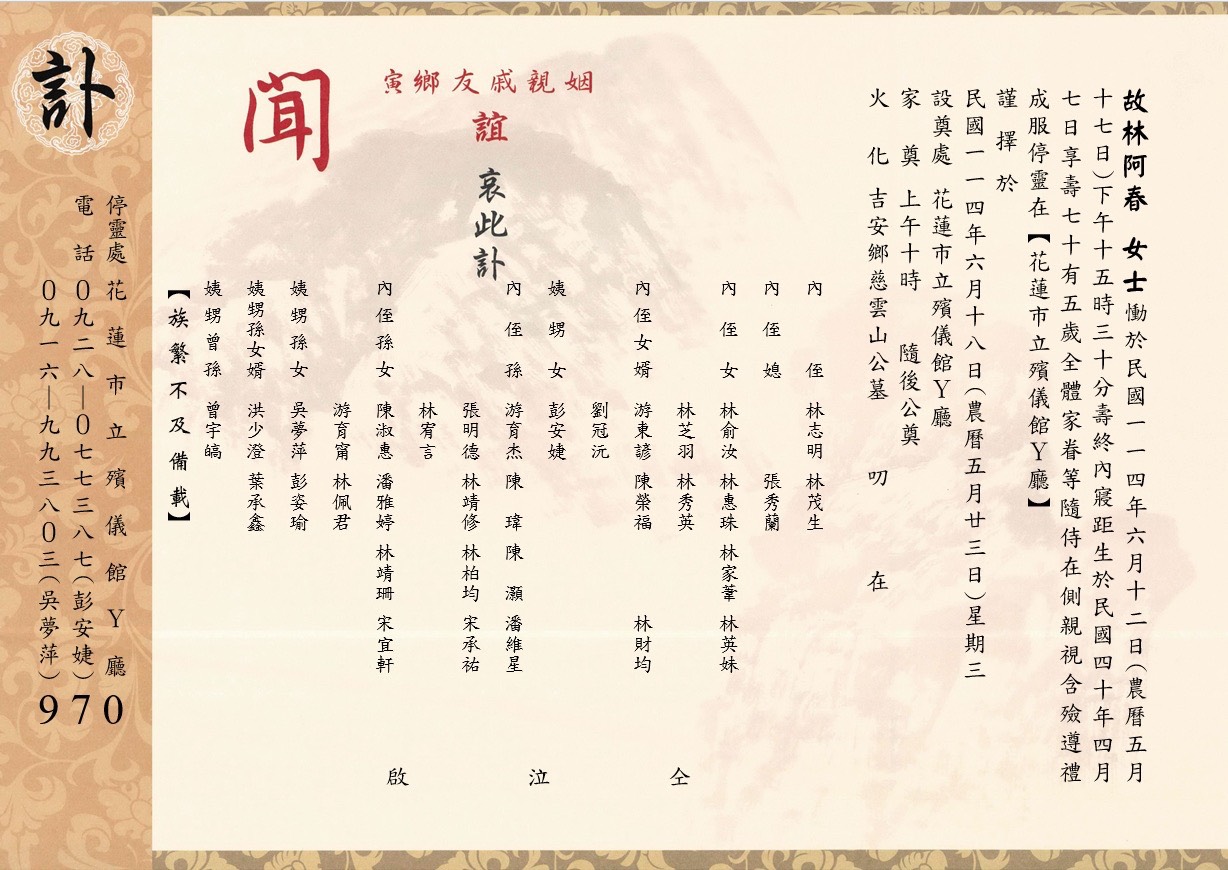 故林阿春 女士慟於民國一一四年六月十二日(農曆五月
十七日)下午十五時三十分壽終內寢距生於民國四十年四月
七日享壽七十有五歲全體家眷等隨侍在側親視含殮遵禮
成服停靈在【花蓮市立殯儀館Y廳】
謹擇於
民國一一四年六月十八日(農曆五月廿三日)星期三
設奠處 花蓮市立殯儀館Y廳
家奠 上午十時 隨後公奠
火化 吉安鄉慈雲山公墓 叨在
姻親戚友鄉寅
誼
哀此訃
聞
內侄 林志明 林茂生
內侄媳 張秀蘭
內侄女 林俞汝 林惠珠 林家葦 林英妹
林芝羽 林秀英
內侄女婿 游東諺 陳榮福 林財均
劉冠沅
姨甥女 彭安婕
內侄孫 游育杰 陳瑋 陳灝 潘維星
張明德 林靖修 林柏均 宋承祐
林宥言
內侄孫女 陳淑惠 潘雅婷 林靖珊 宋宜軒
游育甯 林佩君
姨甥孫女 吳夢萍 彭姿瑜
姨甥孫女婿 洪少澄 葉承鑫
姨甥曾孫 曾宇皜
【族繁不及備載】
仝泣啟
訃
停靈處 花蓮市立殯儀館Y廳0
電話 0九二八—0七七三八七(彭安婕)7
0九一六—九九三八0三(吳夢萍)9